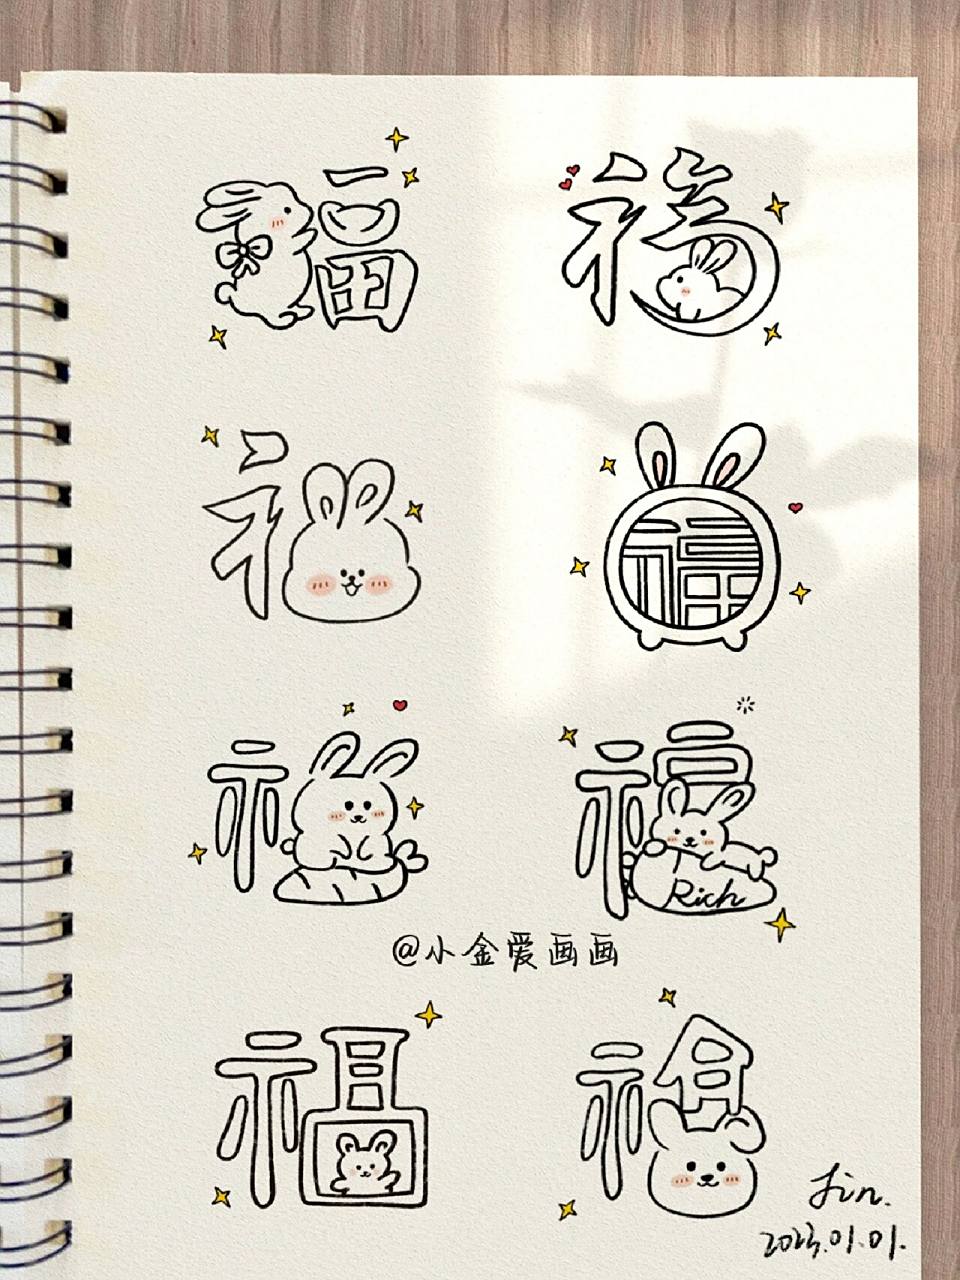 福 福
福 福
福 福
Rich
@小金爱画画
福 福
Jin.
2023.01.01.